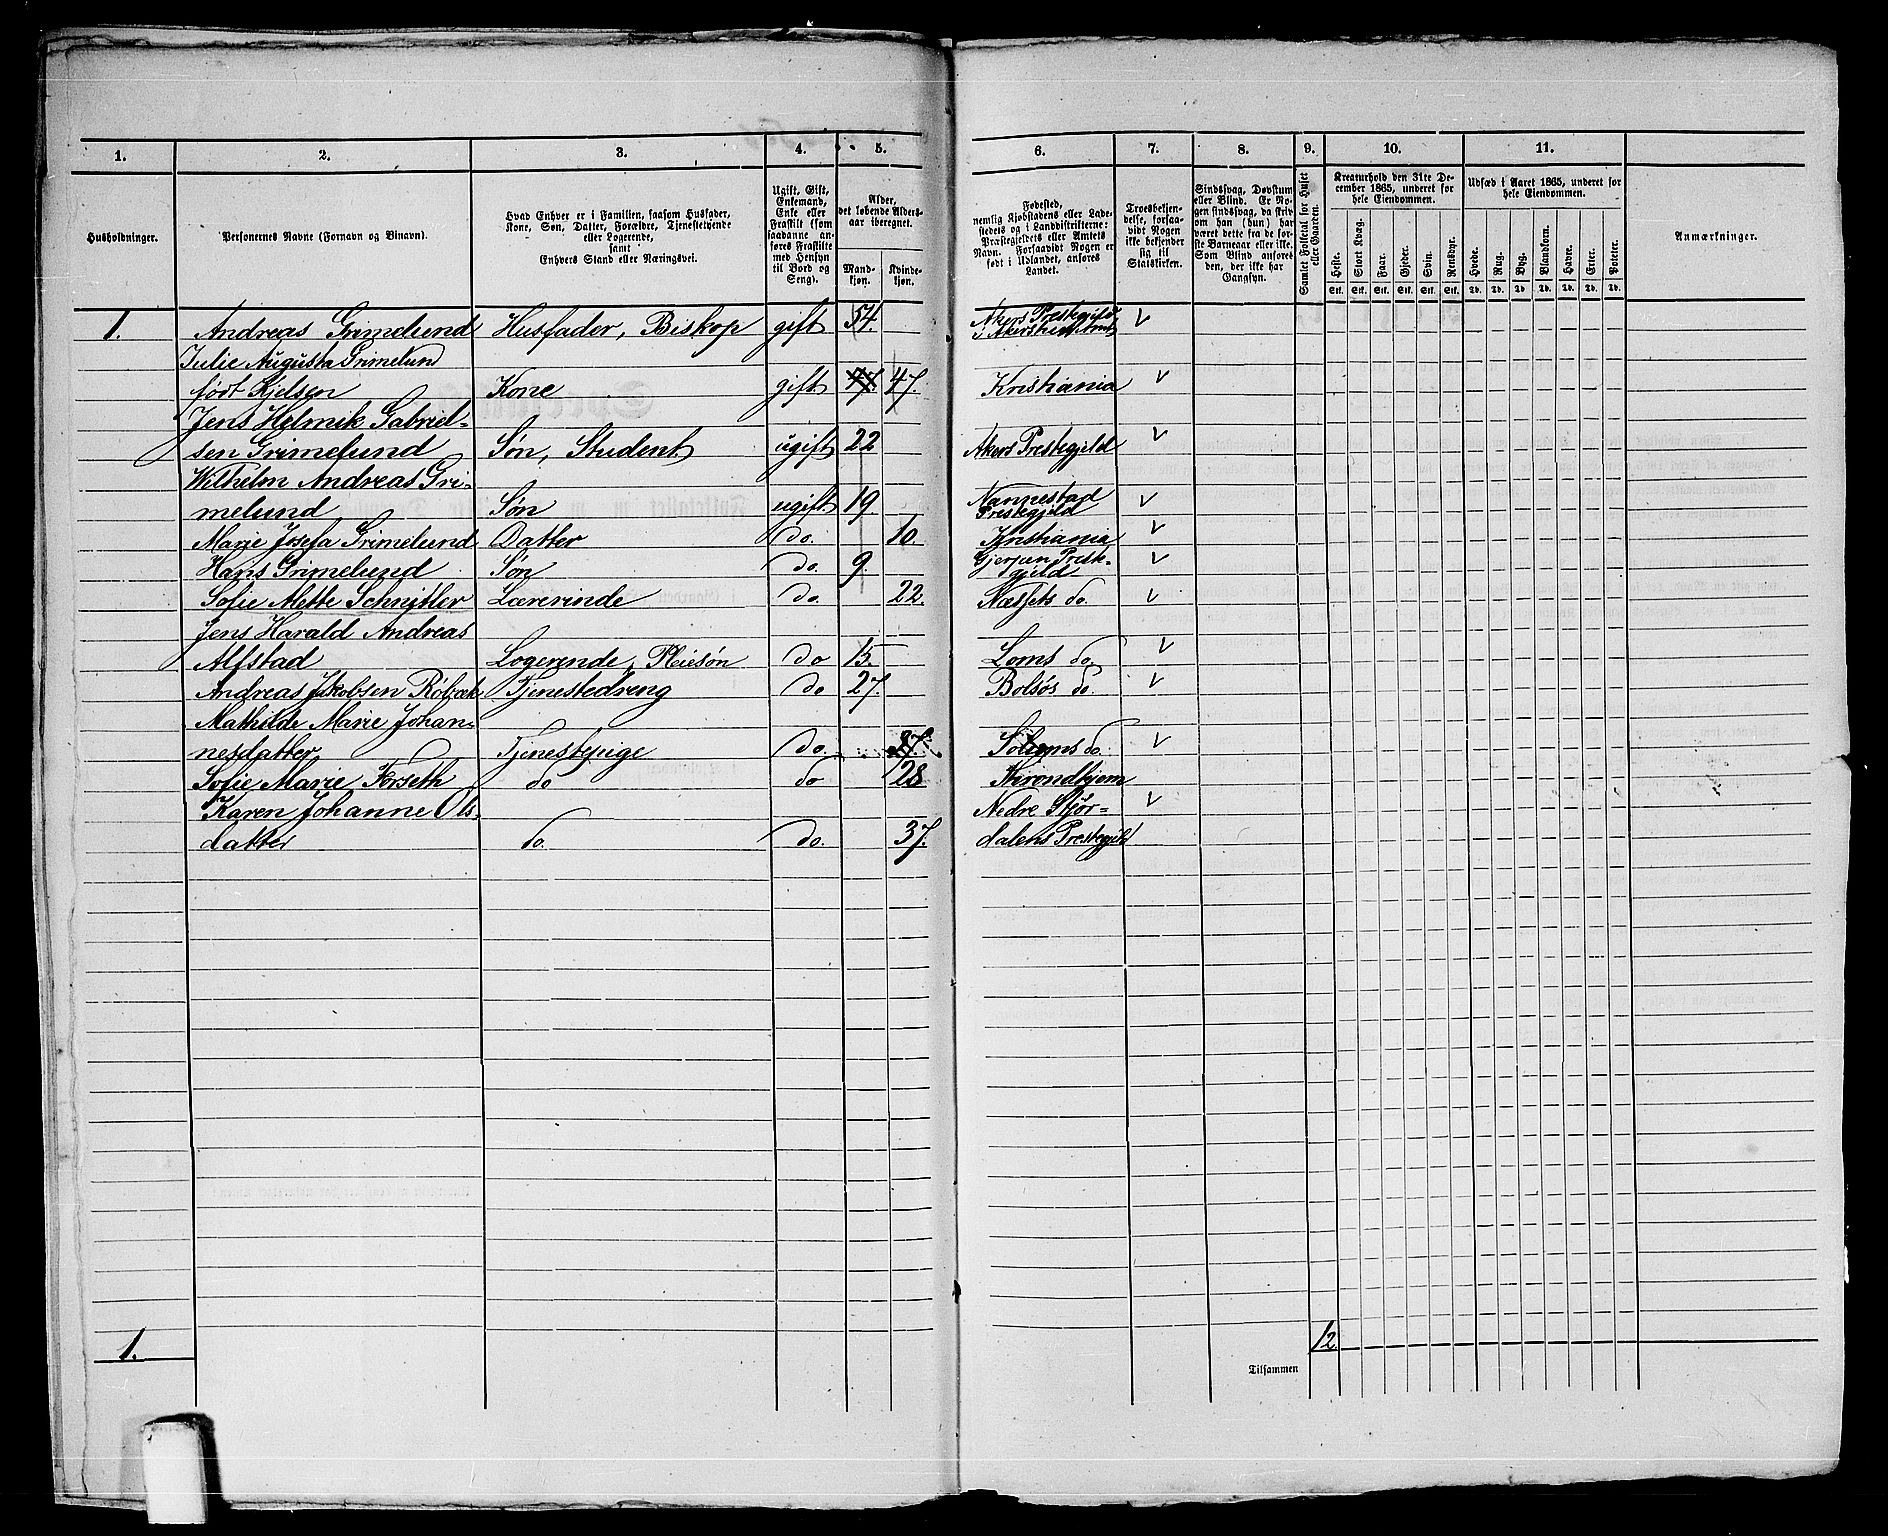 1. 2. 3. 4. 5. 6. 7. 8. 9. 10. 11.
Husholdninger.
Personernes Navne (Fornavn og Tilnavn).
Hvad Enhver er i Familien, saasom Husfader,
Kone, Søn, Datter, Forældre, Tjenestetyende
eller Logerende,
samt
Enhvers Stand eller Næringsvei.
Ugift, Gift,
Enkemand,
Enke eller
Fraskilt (som
saadanne an-
føres Fraskilte
med Hensyn
til Bord og
Seng).
Alder,
det løbende Alders-
aar iberegnet.
Mand-
kjøn.
Kvinde-
kjøn.
Fødested,
nemlig Kjøbstadens eller Lade-
stedets og i Landdistrikterne:
Præstegjeldets eller Amtets
Navn. Forsaavidt Nogen er
født i Udlandet, anføres
Landet.
Troesbekjen-
delse, forsaa-
vidt Nogen
ikke bekjender
sig til
Statskirken.
Sindssvag, Døvstum
eller Blind. Er No-
gen sindssvag, da skriv
om han (hun) har
været dette fra de før-
ste Barneaar eller ikke.
Som Blind anføres
den, der ikke har
Gangsyn.
Samlet Folketal for Huset
eller Gaarden.
Kreaturhold den 31te De-
cember 1865, underet for
hele Eiendommen.
Heste. Stort Kvæg. Faar. Gjeder. Svin. Rensdyr.
Stk. Stk. Stk. Stk. Stk. Stk.
Udsæd i Aaret 1865, underet for
hele Eiendommen.
Hvede. Rug. Byg. Blandkorn. Havre. Erter. Poteter.
Td. Td. Td. Td. Td. Td. Td.
Anmærkninger.
1. Andreas Grimelund Husfader, Biskop gift 54. Akers Prestegjeld i Akershus Amt
Julie Augusta Grimelund
født Kjelsen Kone gift 47. 47. Kristiania
Jens Helmik Gabriel-
sen Grimelund Søn, Student ugift 22 Akers Prestegjeld
Wilhelm Andreas Gri-
melund Søn ugift 19 Nannestad Prestegjeld
Marie Josefa Grimelund Datter do. 10. Kristiania
Hans Grimelund Søn do. 9. Gjerpen Prestegjeld
Sofie Mette Schnitler Lærerinde do. 22. Næssets do.
Jens Harald Andreas
Alfstad Logerende, Pleiesøn do 15. Loms do.
Andreas Jakobsen Røbæk Tjenestedreng do 27. Bolsøs do.
Mathilde Marie Johan-
nesdatter Tjenestepige do. 27. do.
Sofie Marie Forseth do do 28 Throndhjem
Karen Johanne Ols- Nedre Stjør-
datter do. do. 37. dalens Prestegjeld
1.
12.
Tilsammen